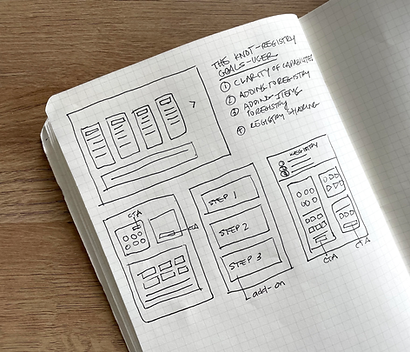 THE KNOT - REGISTRY
GOALS - USER
① CLARITY OF CAPABILITIES
② ADDING TO REGISTRY
③ ADDING ITEMS
TO REGISTRY
④ REGISTRY SHARING
CTA
CTA
STEP 1
STEP 2
STEP 3
add-on
REGISTRY
CTA
CTA